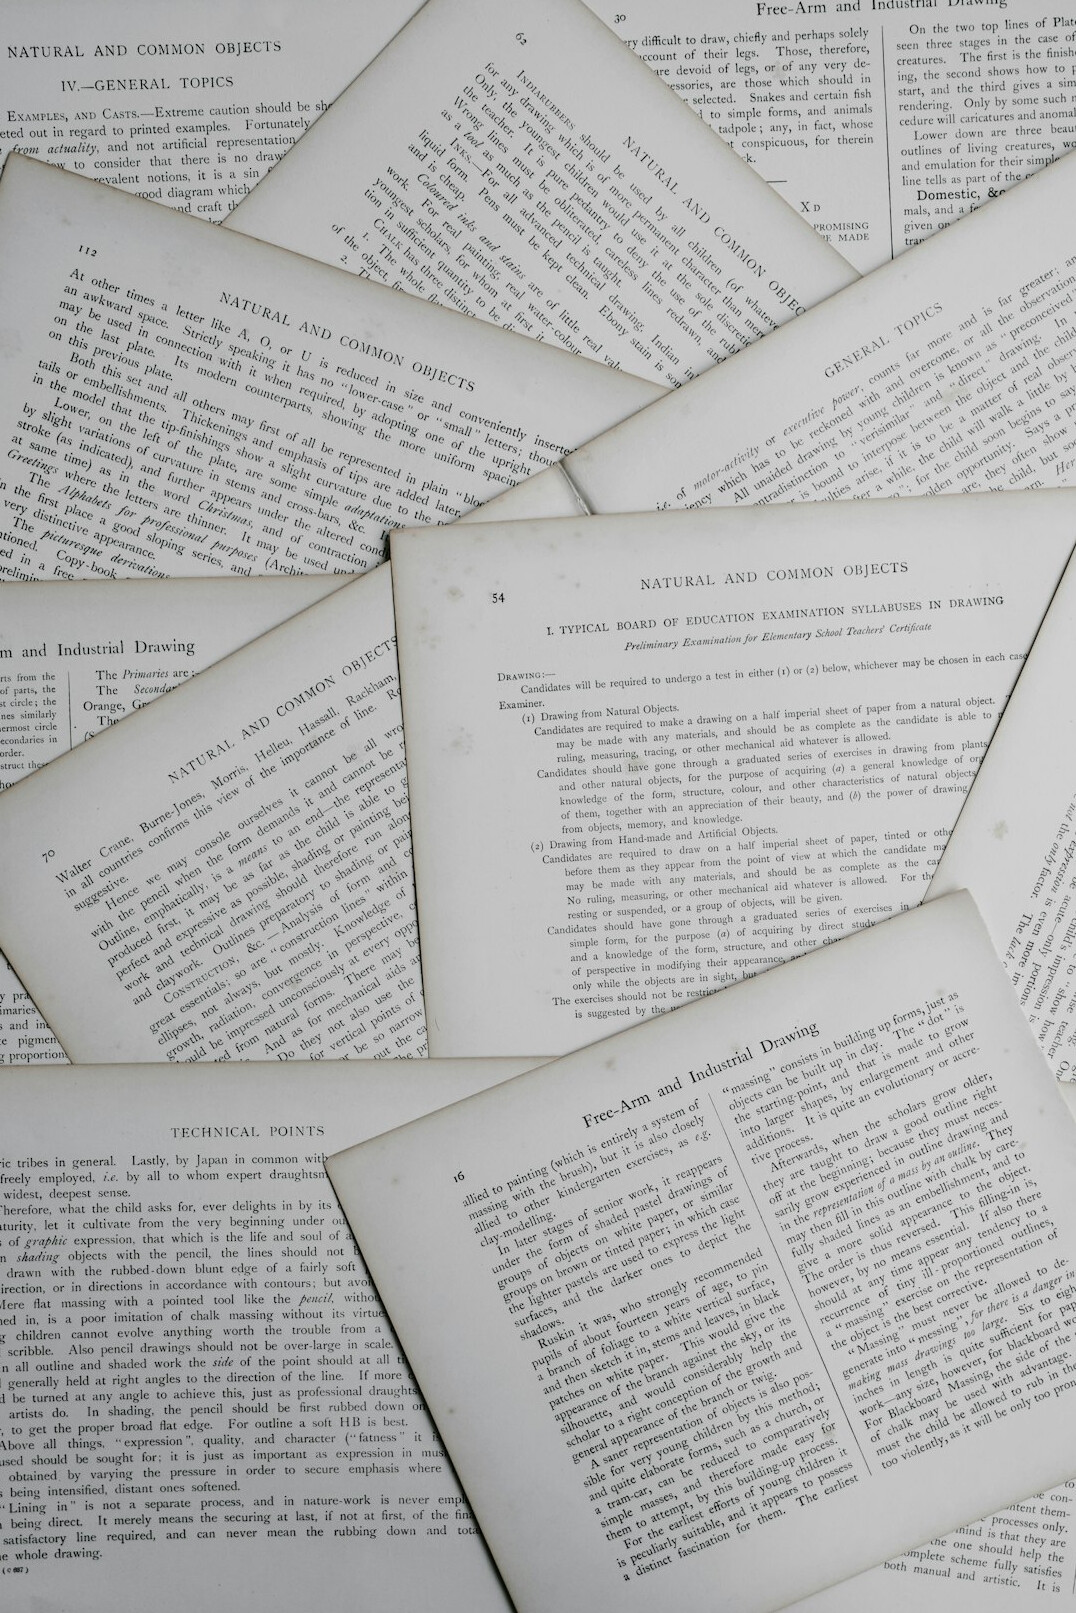 NATURAL AND COMMON OBJECTS
IV.—GENERAL TOPICS
EXAMPLES, AND CASTS.—Extreme caution should be
out in regard to printed examples. Fortunately
from actuality, and not artificial representation
to consider that there is no
prevalent notions, it is a sin
good diagram which
and craft
62
NATURAL AND COMMON
INDIARUBBERS should be used by all children (of
for any drawing which is of more permanent character than
Only, the youngest children would use it at the sole
the teacher. It is pure pedantry to deny the use of the
Wrong lines must be obliterated, careless lines redrawn, and
as a tool as much as the pencil is taught.
INKS.—For all advanced technical drawing, Indian
liquid form. Pens must be kept clean. Ebony stain is
and is cheap.
Coloured inks and stains are of little real
work. For real painting, real water-colour
youngest scholars, for whom at first
tion in sufficient quantity to be
CHALK has three distinct
1. The whole
of the object,
2. The
30
Free-Arm and Industrial Drawing
very difficult to draw, chiefly and perhaps solely
account of their legs. Those, therefore,
are devoid of legs, or of any very de-
which should in
selected. Snakes and certain fish
to simple forms, and animals
tadpole; any, in fact, whose
conspicuous, for therein
X D
PROMISING
BE MADE
On the two top lines of
seen three stages in the case of
creatures. The first is the
ing, the second shows how to
start, and the third gives a
rendering. Only by some such
cedure will caricatures and
Lower down are three
outlines of living creatures,
and emulation for their
line tells as part of the
Domestic, &c.
mals, and a
given on
112
NATURAL AND COMMON OBJECTS
At other times a letter like A, O, or U is reduced in size and conveniently
an awkward space. Strictly speaking it has no "lower-case" or "small" letters;
may be used in connection with it when required, by adopting one of the upright
on the last plate. Its modern counterparts, showing the more uniform
on this previous plate.
Both this set and all others may first of all be represented in plain
tails or embellishments. Thickenings and emphasis of tips are added later,
in the model that the tip-finishings show a slight curvature due to the
Lower, on the left of the plate, are some simple adaptations
by slight variations of curvature in stems and cross-bars, &c.
stroke (as indicated), and further appears under the altered
at same time) as in the word Christmas, and of contraction
Greetings where the letters are thinner. It may be used
The Alphabets for professional purposes
in the first place a good sloping series, and
very distinctive appearance.
The picturesque derivations
Copy-book
in a free
GENERAL TOPICS
i.e. of motor-activity or executive power, counts far more and is far greater;
which has to be reckoned with and overcome, or all the
All unaided drawing by young children is known as "preconceived
contradistinction to "verisimilar" and "direct" drawing. In
is bound to interpose between the object and the
arise, if it is to be a matter of real
after a while, the child will walk a little by
for the child soon begins to
opportunity. Says a
are, they often show
the child, but
Her
Arm and Industrial Drawing
parts from the
of parts, the
circle; the
similarly
circle
in
order.
The Primaries are:
The
Orange,
The
70
NATURAL AND COMMON OBJECTS
Walter Crane, Burne-Jones, Morris, Helleu, Hassall, Rackham,
in all countries confirms this view of the importance of line.
suggestive.
Hence we may console ourselves it cannot be all
with the pencil when the form demands it and cannot be
Outline, emphatically, is a means to an end—the
produced first, it may be as far as the child is able to
perfect and expressive as possible, shading or painting
work and technical drawing should therefore run
and claywork. Outlines preparatory to shading or
CONSTRUCTION, &c.—Analysis of form and
great essentials; so are "construction lines" within
ellipses, not always, but mostly. Knowledge of
growth, radiation, convergence in perspective,
be impressed unconsciously at every
from natural forms. There may
And as for mechanical aids
Do they not also use the
for vertical points of
be so narrow
out the
54
NATURAL AND COMMON OBJECTS
I. TYPICAL BOARD OF EDUCATION EXAMINATION SYLLABUSES IN DRAWING
Preliminary Examination for Elementary School Teachers' Certificate
DRAWING:—
Candidates will be required to undergo a test in either (1) or (2) below, whichever may be chosen in each case
Examiner.
(1) Drawing from Natural Objects.
Candidates are required to make a drawing on a half imperial sheet of paper from a natural object.
may be made with any materials, and should be as complete as the candidate is able to
ruling, measuring, tracing, or other mechanical aid whatever is allowed.
Candidates should have gone through a graduated series of exercises in drawing from plants
and other natural objects, for the purpose of acquiring (a) a general knowledge of
knowledge of the form, structure, colour, and other characteristics of natural objects
of them, together with an appreciation of their beauty, and (b) the power of drawing
from objects, memory, and knowledge.
(2) Drawing from Hand-made and Artificial Objects.
Candidates are required to draw on a half imperial sheet of paper, tinted or
before them as they appear from the point of view at which the candidate
may be made with any materials, and should be as complete as the
No ruling, measuring, or other mechanical aid whatever is allowed. For the
resting or suspended, or a group of objects, will be given.
Candidates should have gone through a graduated series of exercises in
simple form, for the purpose (a) of acquiring by direct study
and a knowledge of the form, structure, and other
of perspective in modifying their appearance, and
only while the objects are in sight, but
The exercises should not be
is suggested by the
TECHNICAL POINTS
tribes in general. Lastly, by Japan in common with
freely employed, i.e. by all to whom expert
widest, deepest sense.
Therefore, what the child asks for, ever delights in by its
let it cultivate from the very beginning under
of graphic expression, that which is the life and soul of
shading objects with the pencil, the lines should not
drawn with the rubbed-down blunt edge of a fairly soft
direction, or in directions in accordance with contours; but
Mere flat massing with a pointed tool like the pencil,
in, is a poor imitation of chalk massing without its
children cannot evolve anything worth the trouble from a
scribble. Also pencil drawings should not be over-large in scale.
all outline and shaded work the side of the point should at all
generally held at right angles to the direction of the line. If more
be turned at any angle to achieve this, just as professional
artists do. In shading, the pencil should be first rubbed down
to get the proper broad flat edge. For outline a soft HB is best.
Above all things, "expression", quality, and character ("fatness" it
used should be sought for; it is just as important as expression in
obtained by varying the pressure in order to secure emphasis where
being intensified, distant ones softened.
"Lining in" is not a separate process, and in nature-work is never
being direct. It merely means the securing at last, if not at first, of the
satisfactory line required, and can never mean the rubbing down and
whole drawing.
16
Free-Arm and Industrial Drawing
allied to painting (which is entirely a system of
massing with the brush), but it is also closely
allied to other kindergarten exercises, as e.g.
clay-modelling.
In later stages of senior work, it reappears
under the form of shaded pastel drawings of
groups of objects on white paper, or similar
groups on brown or tinted paper; in which case
the lighter pastels are used to express the light
surfaces, and the darker ones to depict the
shadows.
Ruskin it was, who strongly recommended
pupils of about fourteen years of age, to pin
a branch of foliage to a white vertical surface,
and then sketch it in, stems and leaves, in black
patches on white paper. This would give the
appearance of the branch against the sky, or its
silhouette, and would considerably help the
scholar to a right conception of the growth and
general appearance of the branch or twig.
A saner representation of objects is also pos-
sible for very young children by this method;
and quite elaborate forms, such as a church, or
tram-car, can be reduced to comparatively
simple masses, and therefore made easy for
them to attempt, by this building-up process.
For the earliest efforts of young children it
is peculiarly suitable, and it appears to possess
a distinct fascination for them. The earliest
"massing" consists in building up forms, just as
objects can be built up in clay. The "dot" is
the starting-point, and that is made to grow
into larger shapes, by enlargement and other
additions. It is quite an evolutionary or accre-
tive process.
Afterwards, when the scholars grow older,
they are taught to draw a good outline right
off at the beginning; because they must neces-
sarily grow experienced in outline drawing and
in the representation of a mass by an outline. They
may then fill in this outline with chalk by care-
fully shaded lines as an embellishment, and to
give a more solid appearance to the object.
The order is thus reversed. This filling-in is,
however, by no means essential. If also there
should at any time appear any tendency to a
recurrence of tiny ill-proportioned outlines,
a "massing" exercise on the representation of
the object is the best corrective.
"Massing" must never be allowed to de-
generate into "messing", for there is a danger in
making mass drawings too large. Six to
inches in length is quite sufficient for
work—any size, however, for blackboard
For Blackboard Massing, the side of the
of chalk may be used with advantage.
must the child be allowed to rub in the
too violently, as it will be only too
processes only.
mind is that they are
the one should help the
complete scheme fully satisfies
both manual and artistic. It is